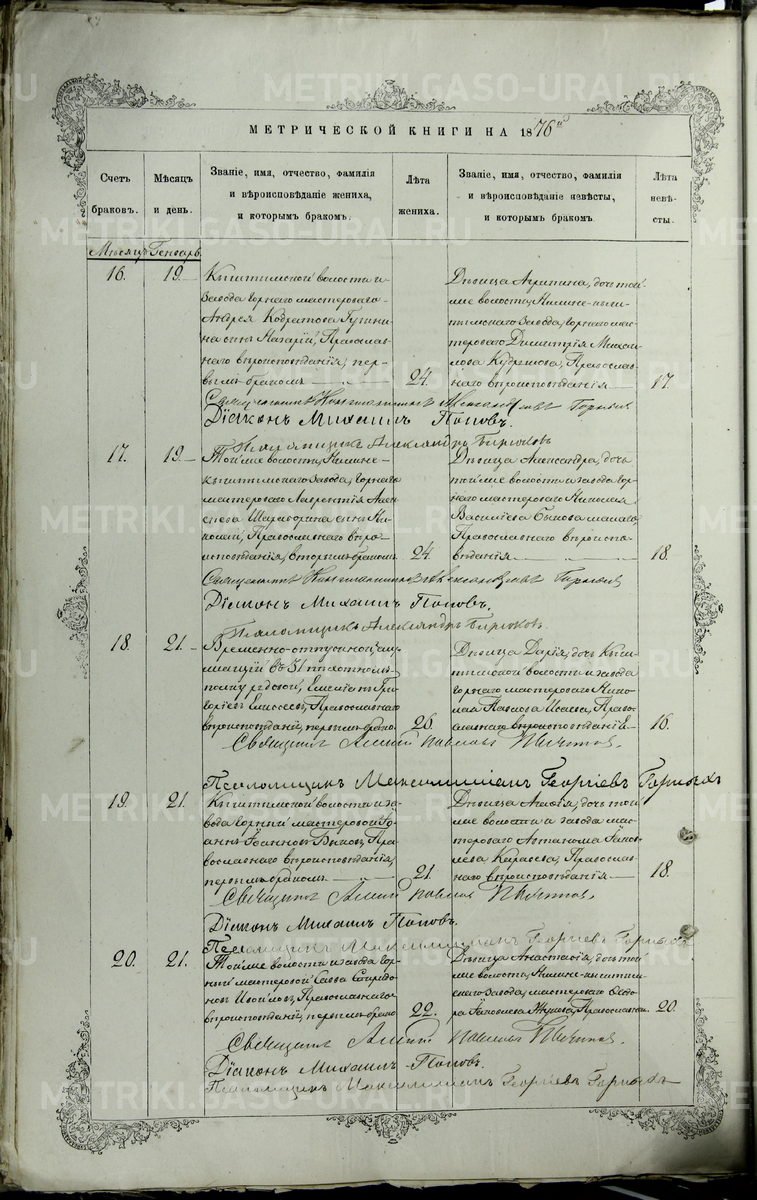 METRIKI.GASO-URAL.RU
МЕТРИЧЕСКОЙ КНИГИ НА 1876й
Счетъ браковъ.
Мѣсяцъ и день.
Званіе, имя, отчество, фамилія
и вѣроисповѣданіе жениха,
и которымъ бракомъ.
Лѣта жениха.
Званіе, имя, отчество, фамилія
и вѣроисповѣданіе невѣсты,
и которымъ бракомъ.
Лѣта невѣ-
сты.
Мѣсяцъ Генварь.
16.
19.
Кыштымской волости и
завода горнаго мастероваго
Андрея Кодратова
на сынъ Назарій, Православ-
наго вѣроисповѣданія, пер-
вымъ бракомъ
24.
Дѣвица Агрипина, дочь той
же волости, Нижне-кыш-
тымскаго завода, горнаго мас-
тероваго Димитрія Михаи-
лова Православ-
наго вѣроисповѣданія
17.
Священникъ Константинъ Александровъ Горныхъ
Діаконъ Михаилъ Поповъ.
Псаломщикъ Александръ Бирюковъ
17.
19.
Той же волости, Нижне-
кыштымскаго завода, горнаго
мастероваго Лаврентія Алек-
сѣева сынъ Ни-
колай, Православнаго вѣро-
исповѣданія, вторымъ бракомъ
24.
Дѣвица Александра, дочь
той же волости и завода гор-
наго мастероваго Николая
Васильева Быкова
Православнаго вѣроиспо-
вѣданія
18.
Священникъ Константинъ Александровъ Горныхъ
Діаконъ Михаилъ Поповъ.
Псаломщикъ Александръ Бирюковъ
18.
21.
Временно-отпускной,
въ 51 пѣхотномъ
полку рядовой, Григ-
орьевъ Елисеевъ, Православнаго
вѣроисповѣданія, первымъ бракомъ
26.
Дѣвица Дарія, дочь Кыш-
тымской волости и завода
горнаго мастероваго Нико-
лая Павлова Исаева, Право-
славнаго вѣроисповѣданія
16.
Священникъ Алексій Павловъ
Псаломщикъ Максимиліанъ Георгіевъ Горныхъ
19.
21.
Кыштымской волости и за-
вода горный мастеровой Іо-
аннъ Іоанновъ Быковъ, Пра-
вославнаго вѣроисповѣданія,
первымъ бракомъ
21.
Дѣвица дочь той
же волости и завода мас-
тероваго Автанома Яков-
лева Карасева, Православ-
наго вѣроисповѣданія
18.
Священникъ Алексій Павловъ
Діаконъ Михаилъ Поповъ.
Псаломщикъ Максимиліанъ Георгіевъ Горныхъ
20.
21.
Той же волости и завода гор-
ный мастеровой Савва Спиридо-
новъ Православнаго
вѣроисповѣданія, первымъ бракомъ
22.
Дѣвица Анастасія, дочь той
же волости, Нижне-кыштым-
скаго завода, мастероваго Ѳедо-
ра Яковлева Православнаго
20.
Священникъ Алексій Павловъ
Діаконъ Михаилъ Поповъ.
Псаломщикъ Максимиліанъ Георгіевъ Горныхъ